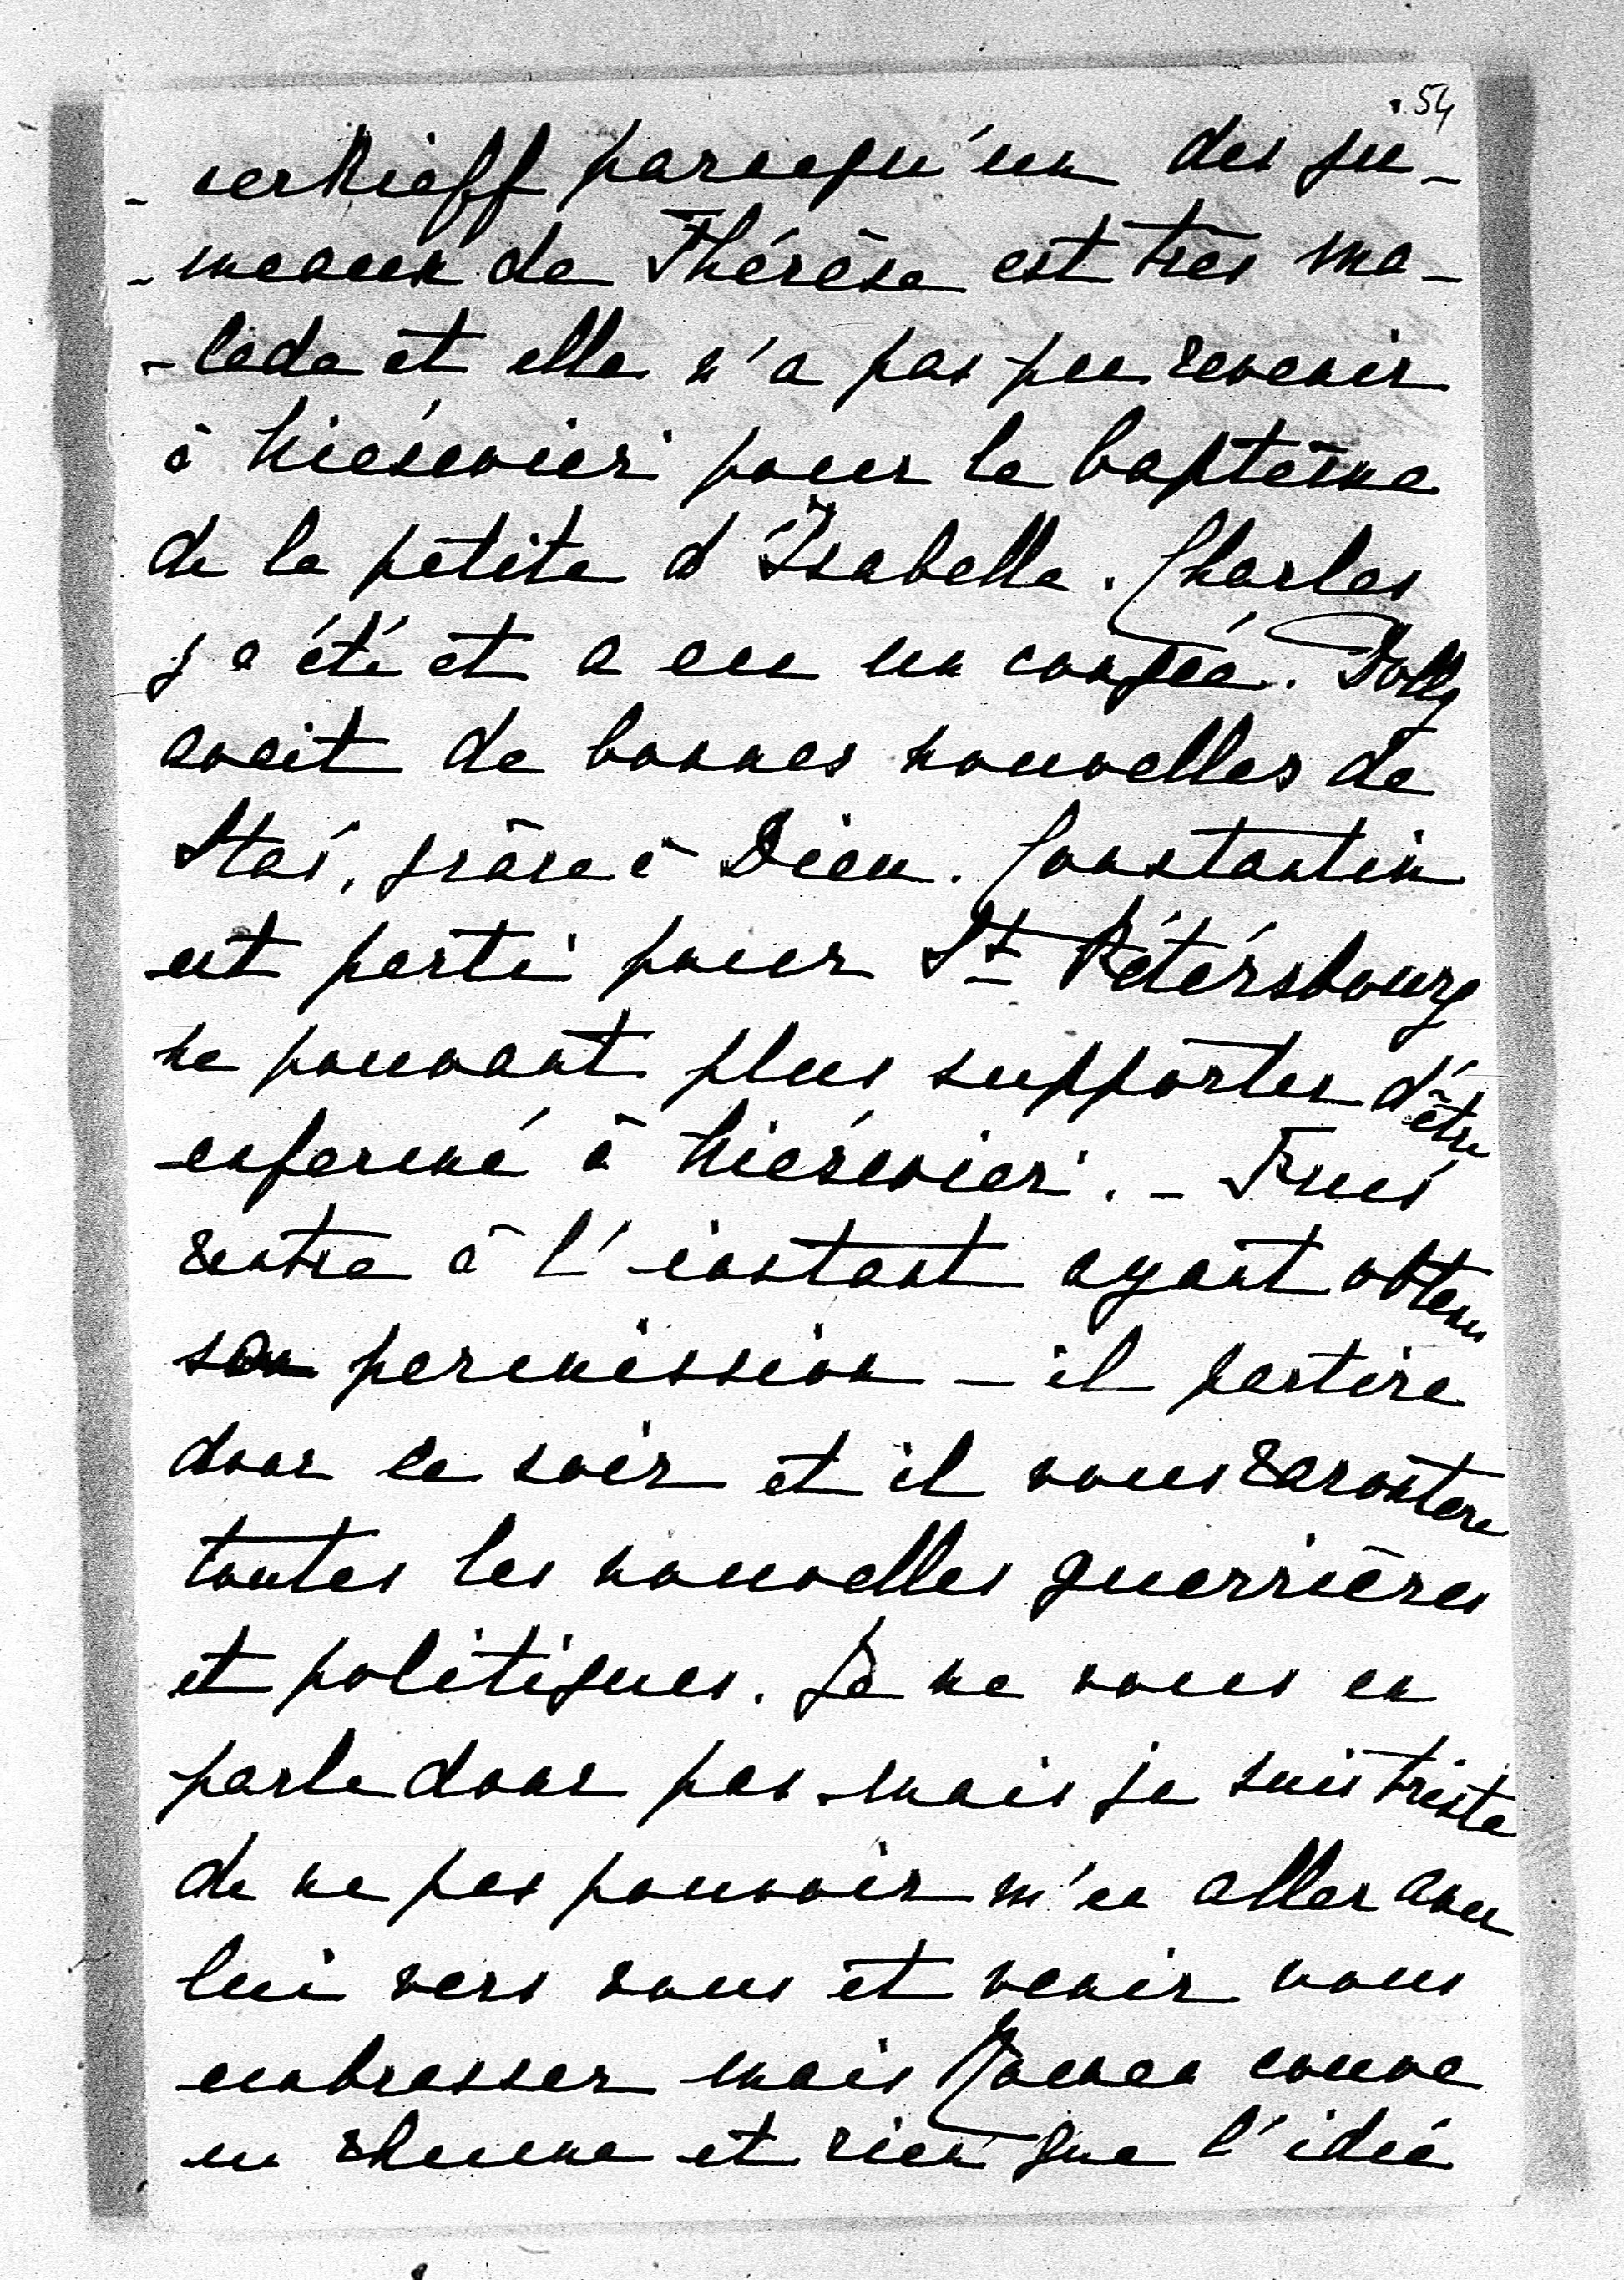 54
- cerkieff parcequ'un des ju-
- meaux de Thérèse est très ma-
- lade et elle n'a pas pu revenir
à Niéśwież pour le baptême
de la petite d'Isabelle. Charles
y a été et a eu un congée. Dolly
avait de bonnes nouvelles de
Staś, grâce à Dieu. Constantin
est parti pour St Pétérsbourg
ne pouvant plus supporter d'être
enfermé à Niéświeź. -
rentre à l'instant ayant obtenu
son permission - il partira
donc ce soir et il vous racontera
toutes les nouvelles guerrières
et politiques. Je ne vous en
parle donc pas mais je suis triste
de ne pas pouvoir m'en aller avec
lui vers vous et venir vous
embrasser mais couve
un rhume et rien que l'idée